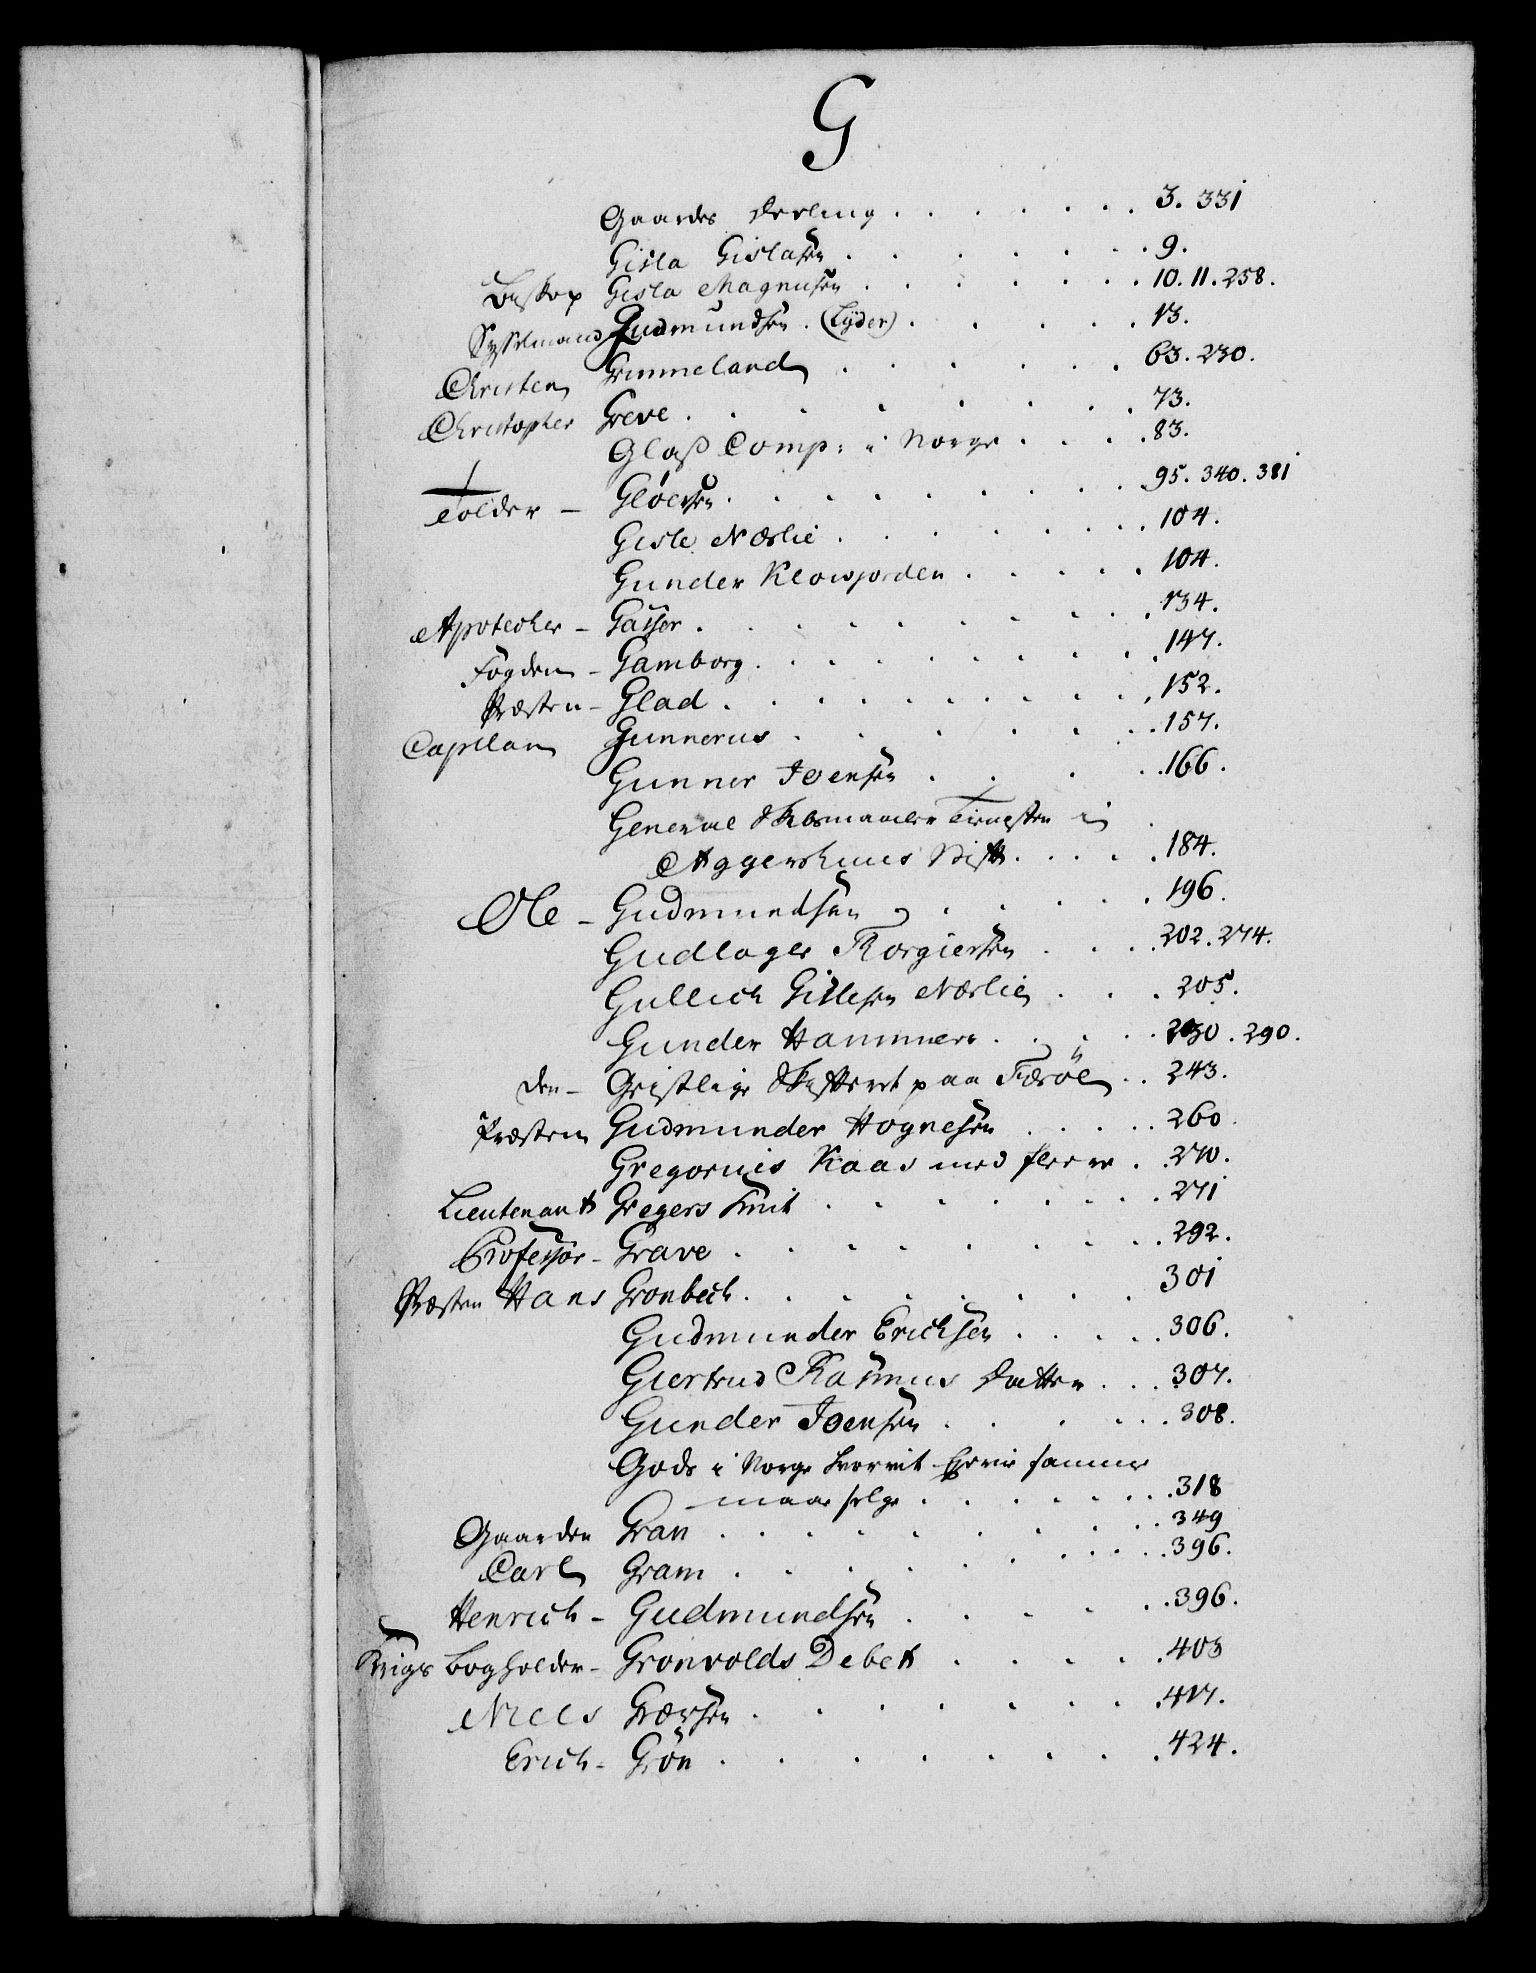 G
Gaardes Deeling . . . . . . . 3. 331
Gisla Gislasen . . . . . . . 9.
Biskop Gisla Magnusen . . . . . . . 10. 11. 258.
Sysselmand Gudmundsen. (Lyder) . . . . . 13.
Christen Grimmeland . . . . . . 63. 230.
Christopher Greve . . . . . . . . 73.
Glas Comp: i Norge . . . . 83.
Tolder - Gløersen . . . . . . . . . 95. 340. 381
Gisle Nærlie . . . . . . . 104.
Gunder . . . . . 104.
Apotecher - Gasser . . . . . . . . . 134.
Fogden - Gamborg . . . . . . . . . 147.
Præsten - Glad . . . . . . . . . . 152.
Capellan Gunnerus . . . . . . . 157.
Gunner Joensen . . . . . 166.
General i
Aggershuus Stift . . . . . 184.
Ole - Gudmundsen . . . . . 196.
Gudlager Thorgiersen . . . . 202. 274.
Gullich Gislesen Nærlie . . . 205.
Gunder Hammer . . . . . 230. 290.
den - Geistlige Skifteret paa Færöe . . 243.
Præsten Gudmunder Høgnesen . . . . . 260.
Gregorius Kaas med fleere . . 270.
Lieutenant Gregers Smit . . . . . . . . 271
Professor - Grave . . . . . . . . . 292.
Præsten Hans Grønbech . . . . . . . . 301
Gudmunder Erichsen . . . . . 306.
Giertrud Rasmus Datter . . . 307.
Gunder Joensen . . . . . . 308.
Gods i Norge hvorvit Eierne samme
maae sælge . . . . . . . . 318
Gaarden Gran . . . . . . . . . . 349
Carl Gram . . . . . . . . . . 396.
Henrich - Gudmundsen . . . . . . 396.
Krigs Bogholder - Grønvolds Debet . . . . . 403
Niels Græsen . . . . . . . . 417.
Erich - Grøn . . . . . . . . 424.